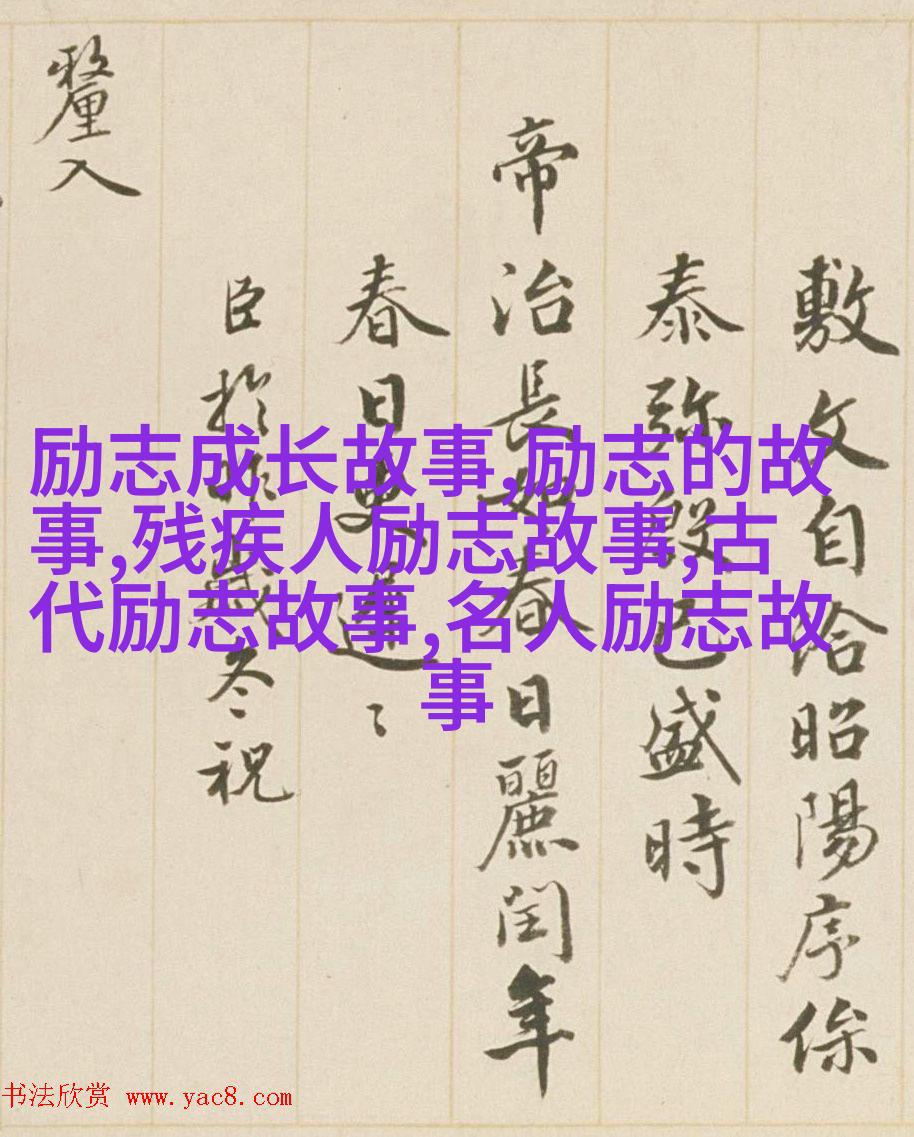 敷文自洽昭陽序俆
泰弥殷已盛時
帝治長如春日麗閏年
春日更遲〻
臣於昨歲冬祝
釐入
励志成长故事,励志的故
事,残疾人励志故事,古
代励志故事,名人励志故
事
书法欣赏 www.yac8.com